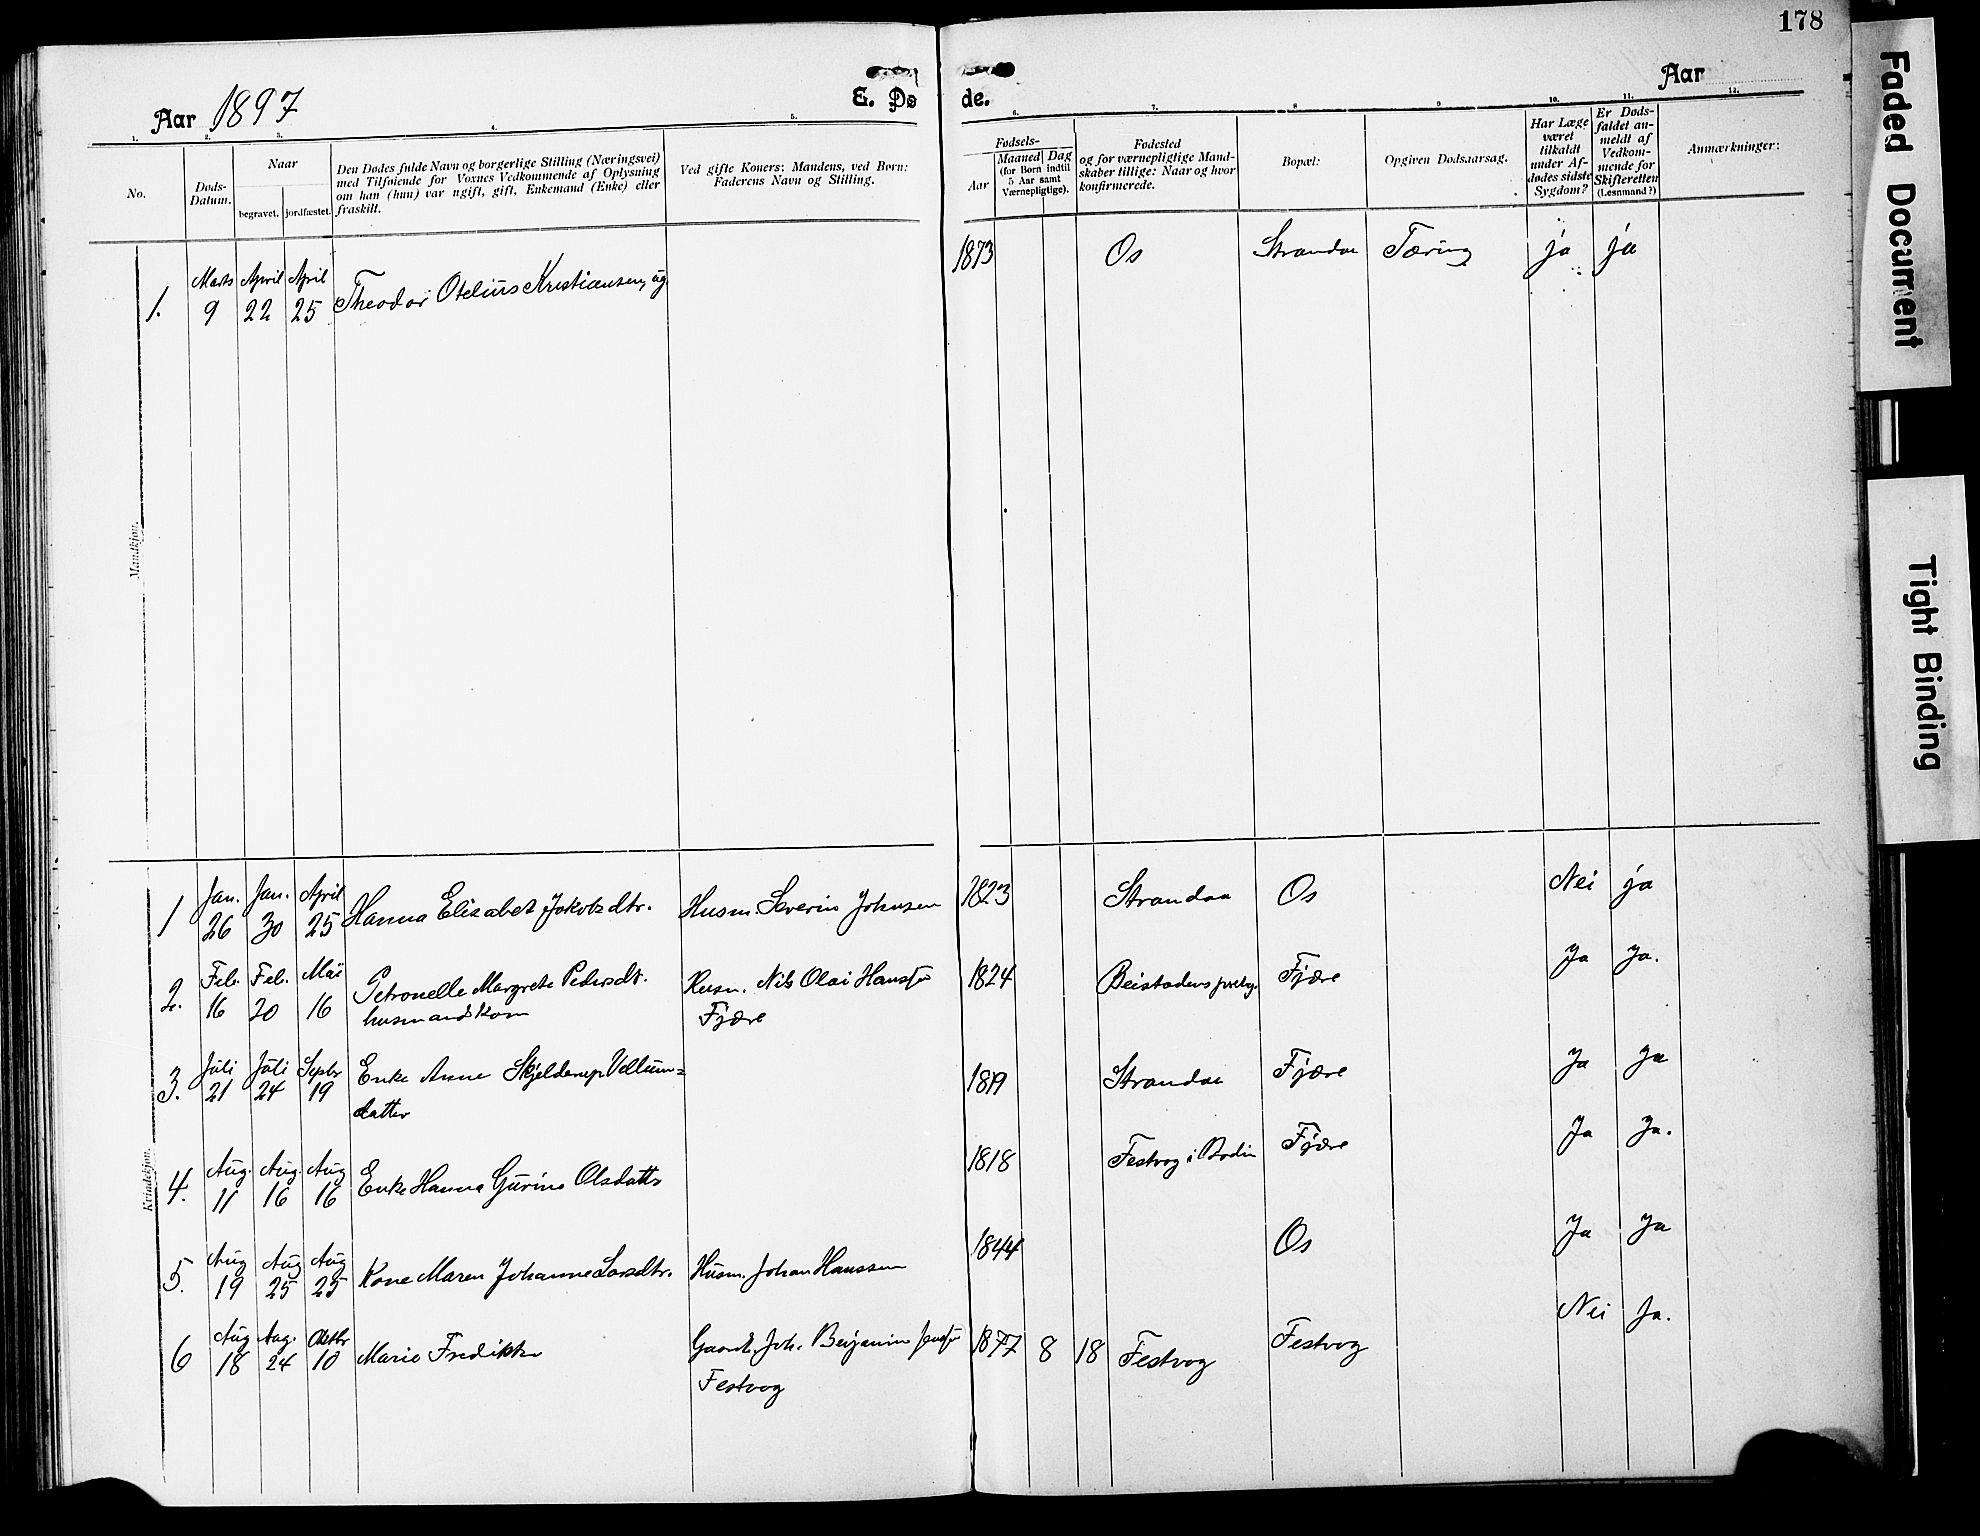 178
Aar 1897
E. Dø
de.
Aar
1. 2. 3. 4. 5. 6. 7. 8 9 10. 11. 12.
No.
Døds-
Datum.
Naar
begravet.
jordfæstet.
Den Dødes fulde Navn og borgerlige Stilling (Næringsvei)
med Tilføiende for Voxnes Vedkommende af Oplysning
om han (hun) var ugift, gift, Enkemand (Enke) eller
fraskilt.
Ved gifte Koners: Mandens, ved Børn:
Faderens Navn og Stilling.
Fødsels-
Aar
Maaned
Dag
(for Børn indtil
5 Aar samt
Værnepligtige).
Fødested
og for værnepligtige Mand-
skaber tillige: Naar og hvor
konfirmerede.
Bopæl:
Opgiven Dødsaarsag.
Har Læge
været
tilkaldt
under Af-
dødes sidste
Sygdom?
Er Døds-
faldet an-
meldt af
Vedkom-
mende for
Skifteretten
(Lensmand?)
Anmærkninger:
Mandkjøn.
1. Marts 9 April 22 April 25 Theodor Otelius Kristiansen, ug. 1873 Os Strandaa Tæring ja ja
Kvindekjøn.
1 Jan. 26 Jan. 30 April 25 Hanna Elisabet Jakobsdtr. Husm. Severin Johnsen 1823 Strandaa Os Nei ja
2. Feb. 16 Feb. 20 Mai 16 Petronelle Margrete Pedersdt. Husm. Nils Olai Hans 1824 Beistadens Fjære Ja Ja.
husmandskone Fjære
3. Juli 21 Juli 24 Septbr 19 Enke Anne Skjelderup Vellum= 1819 Strandaa Fjære Ja Ja
datter
4. Aug. 11 Aug. 16 Aug 16 Enke Hanna Gurine Olsdattr 1818 Festvog i Bodin Fjære Ja Ja.
5. Aug 19 Aug 25 Aug 25 Kone Maren Johanne Larsdtr. Husm. Johan Hanssen 1844 Os Ja Ja
6 Aug 18 Aug. 24 Oktbr 10 Marie Fredikke Gaardb. Joh. Benjamin 1877 8 18 Festvog Festvog Nei Ja.
Festvog
Faded Document
Tight Binding